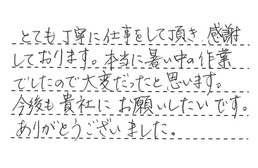 とても丁寧に仕事をして頂き 感謝
しております。本当に暑い中の作業
でしたので大変だったと思います。
今後も貴社に お願いしたいです。
ありがとうございました。